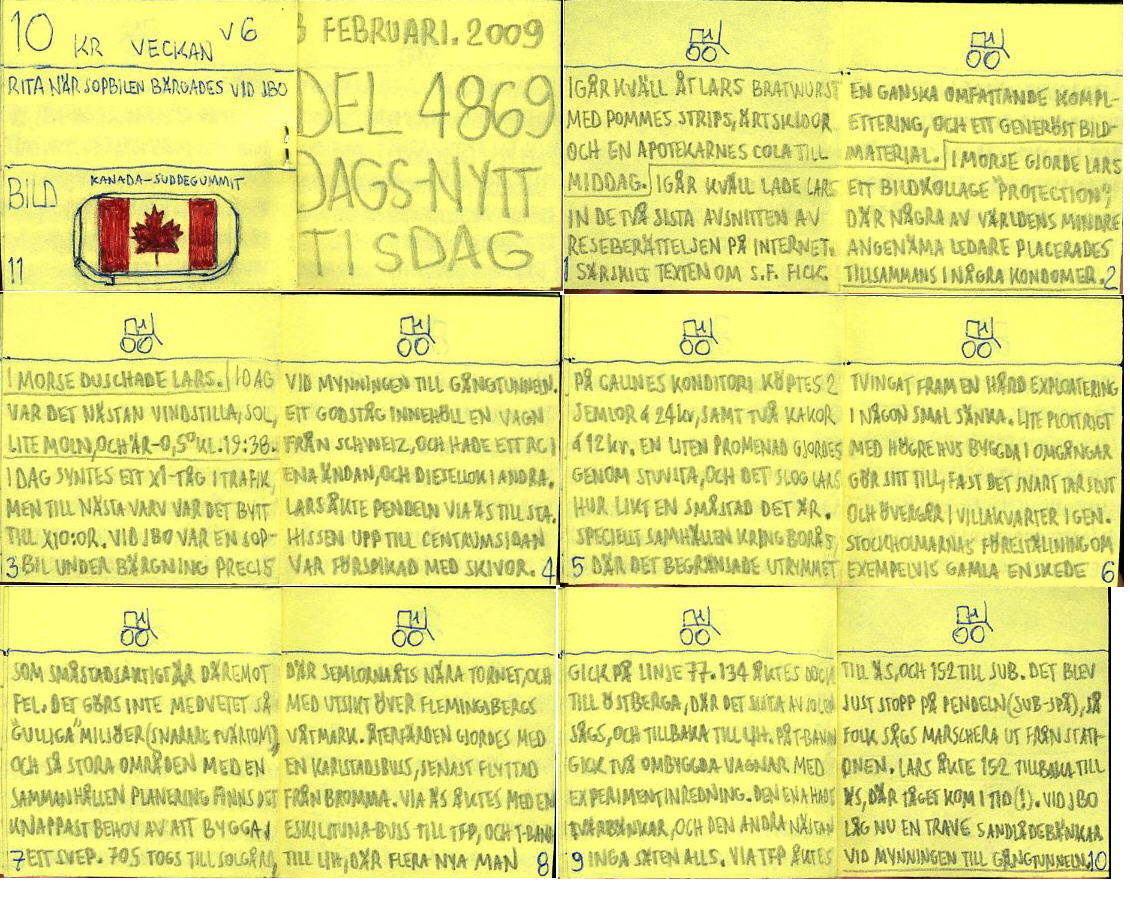 10 KR VECKAN V6
RITA NÄR SOPBILEN BÄRGADES VID JBO
BILD
KANADA-SUDDEGUMMIT
11
3 FEBRUARI. 2009
DEL 4869
DAGS-NYTT
TISDAG
IGÅR KVÄLL ÅT LARS BRATWURST
MED POMMES STRIPS, ÄRTSKIDOR
OCH EN APOTEKARNES COLA TILL
MIDDAG. IGÅR KVÄLL LADE LARS
IN DE TVÅ SISTA AVSNITTEN AV
RESEBERÄTTELSEN PÅ INTERNET.
1 SÄRSKILT TEXTEN OM S.F. FICK
EN GANSKA OMFATTANDE KOMPL-
ETTERING, OCH ETT GENERÖST BILD-
MATERIAL. I MORSE GJORDE LARS
ETT BILDKOLLAGE "PROTECTION",
DÄR NÅGRA AV VÄRLDENS MINDRE
ANGENÄMA LEDARE PLACERADES
TILLSAMMANS I NÅGRA KONDOMER. 2
I MORSE DUSCHADE LARS. IDAG
VAR DET NÄSTAN VINDSTILLA, SOL,
LITE MOLN, OCH ÄR -0,5° KL. 19:38.
I DAG SYNTES ETT X1-TÅG I TRAFIK,
MEN TILL NÄSTA VARV VAR DET BYTT
TILL X10:OR. VID JBO VAR EN SOP-
3 BIL UNDER BÄRGNING PRECIS
VID MYNNINGEN TILL GÅNGTUNNELN.
ETT GODSTÅG INNEHÖLL EN VAGN
FRÅN SCHWEIZ, OCH HADE ETT RC I
ENA ÄNDAN, OCH DIESELLOK I ANDRA.
LARS ÅKTE PENDELN VIA ÄS TILL STA.
HISSEN UPP TILL CENTRUMSIDAN
VAR FÖRSPIKAD MED SKIVOR. 4
PÅ CALINES KONDITORI KÖPTES 2
SEMLOR á 24kr, SAMT TVÅ KAKOR
á 12kr. EN LITEN PROMENAD GJORDES
GENOM STUVSTA, OCH DET SLOG LARS
HUR LIKT EN SMÅSTAD DET ÄR.
SPECIELLT SAMHÄLLEN KRING BORÅS,
5 DÄR DET BEGRÄNSADE UTRYMMET
TVINGAT FRAM EN HÅRD EXPLOATERING
I NÅGON SMAL SÄNKA. LITE PLOTTRIGT
MED HÖGRE HUS BYGGDA I OMGÅNGAR
GÖR SITT TILL, FAST DET SNART TAR SLUT
OCH ÖVERGÅR I VILLAKVARTER IGEN.
STOCKHOLMARNAS FÖRESTÄLLNING OM
EXEMPELVIS GAMLA ENSKEDE 6
SOM SMÅSTADSAKTIGT ÄR DÄREMOT
FEL. DET GÖRS INTE MEDVETET SÅ
"GULLIGA" MILJÖER (SNARARE TVÄRTOM),
OCH SÅ STORA OMRÅDEN MED EN
SAMMANHÅLLEN PLANERING FINNS DET
KNAPPAST BEHOV AV ATT BYGGA I
7 ETT SVEP. 705 TOGS TILL SOLGÅRD,
DÄR SEMLORNA ÅTS NÄRA TORNET, OCH
MED UTSIKT ÖVER FLEMINGSBERGS
VÅTMARK. ÅTERFÄRDEN GJORDES MED
EN KARLSTADSBUSS, SENAST FLYTTAD
FRÅN BROMMA. VIA ÄS ÅKTES MED EN
ESKILSTUNA-BUSS TILL TFP, OCH T-BANA
TILL LIH, DÄR FLERA NYA MAN 8
GICK PÅ LINJE 77. 134 ÅKTES DOCK
TILL ÖSTBERGA, DÄR DET SISTA AV SOLEN
SÅGS, OCH TILLBAKA TILL LIH. PÅ T-BANAN
GICK TVÅ OMBYGGDA VAGNAR MED
EXPERIMENTINREDNING. DEN ENA HADE
TVÄRBÄNKAR, OCH DEN ANDRA NÄSTAN
9 INGA SÄTEN ALLS. VIA TFP ÅKTES
TILL ÄS, OCH 152 TILL SUB. DET BLEV
JUST STOPP PÅ PENDELN (SUB-SPÅ), SÅ
FOLK SÅGS MARSCHERA UT FRÅN STATI-
ONEN. LARS ÅKTE 152 TILLBAKA TILL
ÄS, DÄR TÅGET KOM I TID (!). VID JBO
LÅG NU EN TRAVE SANDLÅDEBÄNKAR
VID MYNNINGEN TILL GÅNGTUNNELN. 10